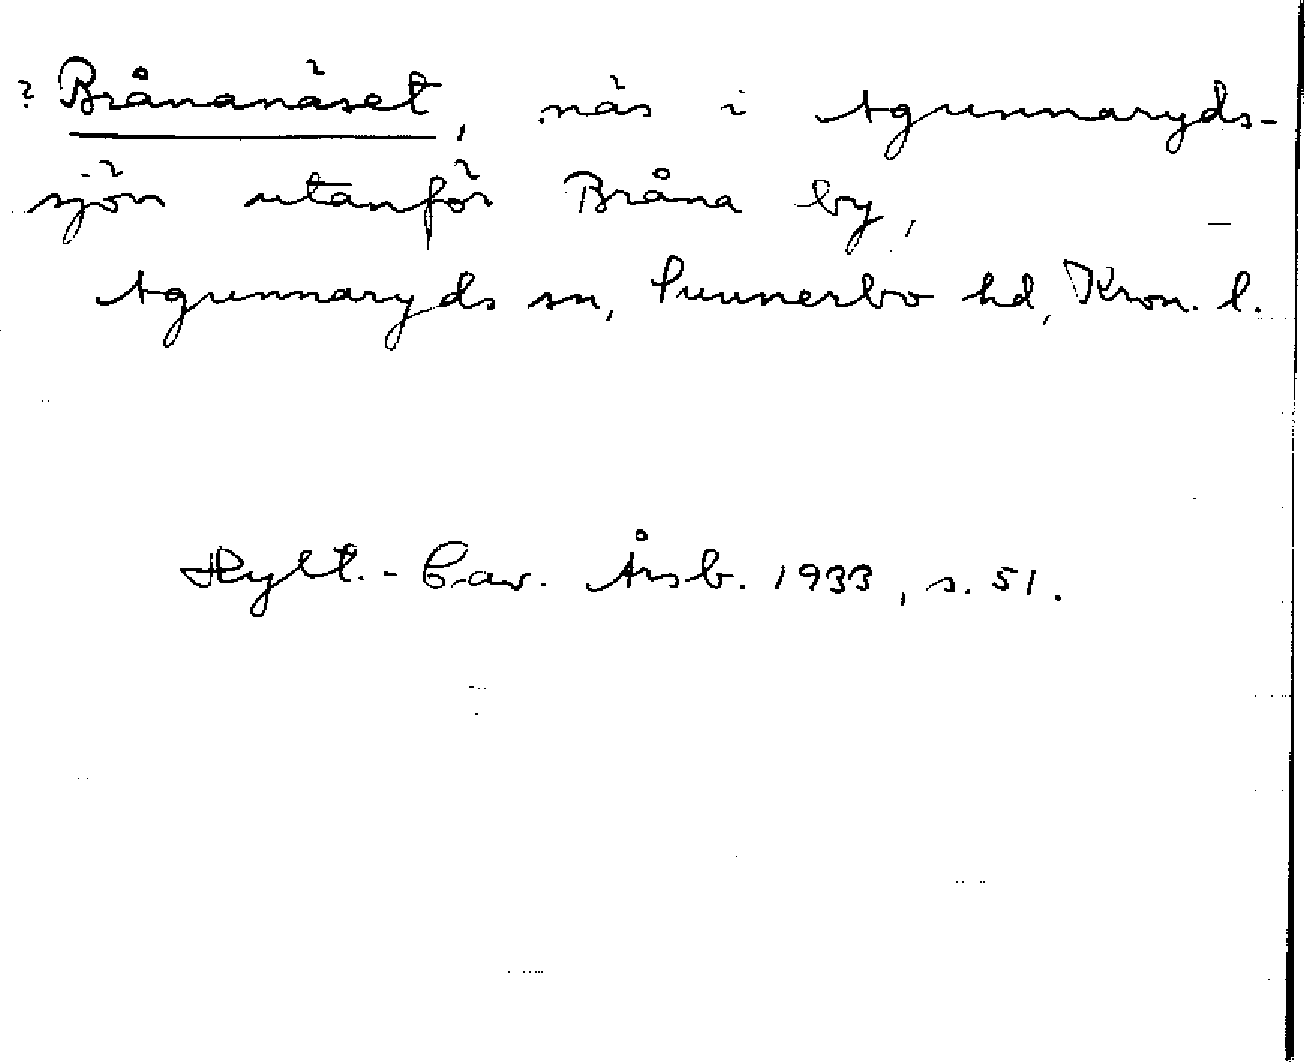 ? Brånanäset, näs i Agunnaryds-
sjön utanför Bråna by,
Agunnaryds sn, Sunnerbo hd, Kron. l.
Hylt.-Cav. Årsb. 1933, s. 51.